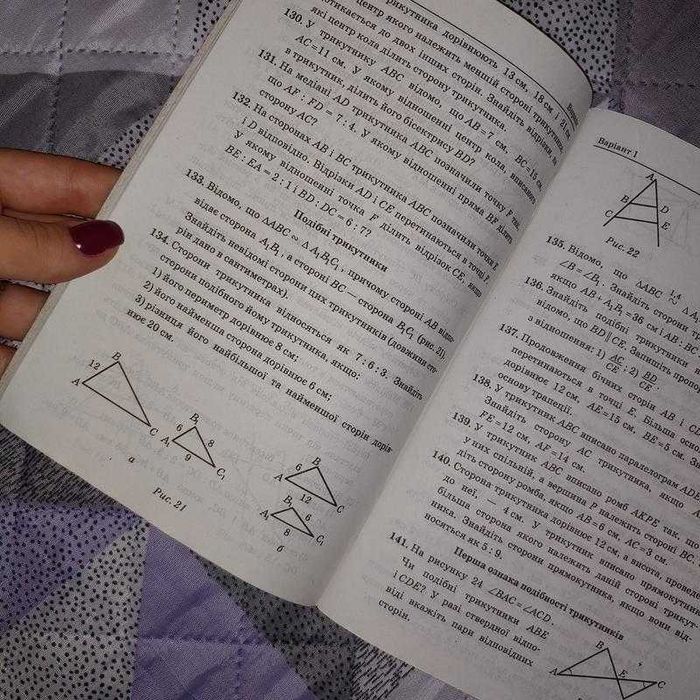 центр якого належить меншій стороні трикутника
трикутника дорівнюють 13 см, 18 см і
дотикається до двох інших сторін. Знайдіть відрізки, на
які центр кола ділить сторону трикутника.
130. У трикутнику ABC відомо, що AB=7 см, BC=15 см,
AC=11 см. У якому відношенні центр кола, вписаного
в трикутник, ділить його бісектрису BD?
131. На медіані AD трикутника ABC позначили точку F так,
що AF : FD = 7 : 4. У якому відношенні пряма BF ділить
сторону AC?
132. На сторонах AB і BC трикутника ABC позначили точки E
і D відповідно. Відрізки AD і CE перетинаються в точці F.
У якому відношенні точка F ділить відрізок CE, якщо
BE : EA = 2 : 1 і BD : DC = 6 : 7?
Подібні трикутники
133. Відомо, що △ABC ∾ △A₁B₁C₁, причому стороні AB відпо-
відає сторона A₁B₁, а стороні BC — сторона B₁C₁ (рис. 21).
Знайдіть невідомі сторони цих трикутників (довжини сто-
рін дано в сантиметрах).
134. Сторони трикутника відносяться як 7 : 6 : 3. Знайдіть
сторони подібного йому трикутника, якщо:
1) його периметр дорівнює 8 см;
2) його найменша сторона дорівнює 6 см;
3) різниця його найбільшої та найменшої сторін дорів-
нює 20 см.
B
12
A
C
B₁
6
8
A₁
9
C₁
а
B
6
A
12
C
B₁
6
A₁
8
C₁
б
Рис. 21
Варіант 1
A
B
D
C
E
Рис. 22
135. Відомо, що △ABC ∾ △A
∠B=∠B₁. Знайдіть сторони
якщо AB+A₁B₁=36 см і AB : BC
136. Знайдіть подібні трикутники
відомо, що BD ∥ CE. Запишіть
з відношення: 1) AC/CE; 2) BD/CE
137. Продовження бічних сторін AB і CD
перетинаються в точці E. Більша
дорівнює 12 см, AE=15 см, BE=5 см.
основу трапеції.
138. У трикутник ABC вписано паралелограм
Знайдіть сторону AC трикутника, якщо
FE=12 см, AF=14 см.
139. У трикутник ABC вписано ромб AKPE так, що
у них спільний, а вершина P належить стороні BC.
діть сторону ромба, якщо AB=6 см, AC=3 см.
140. Сторона трикутника дорівнює 12 см, а висота, проведена
до неї, — 4 см. У трикутник вписано прямокутник,
більша сторона якого належить даній стороні трикут-
ника. Знайдіть сторони прямокутника, якщо вони від-
носяться як 5 : 9.
Перша ознака подібності трикутників
141. На рисунку 24 ∠BAC=∠ACD.
Чи подібні трикутники ABE
і CDE? У разі ствердної відпо-
віді вкажіть пари відповідних
сторін.
B
E
A
C